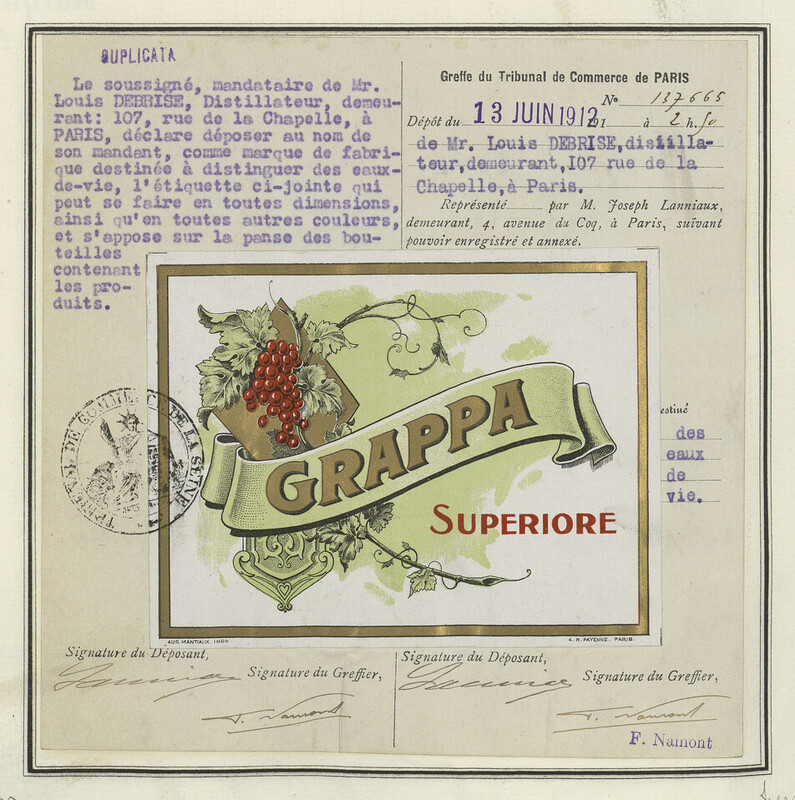 DUPLICATA
Le soussigné, mandataire de Mr.
Louis DEBRISE, Distillateur, demeu-
rant: 107, rue de la Chapelle, à
PARIS, déclare déposer au nom de
son mandant, comme marque de fabri-
que destinée à distinguer des eaux-
de-vie, l'étiquette ci-jointe qui
peut se faire en toutes dimensions,
ainsi qu'en toutes autres couleurs,
et s'appose sur la panse des bou-
teilles
contenant
les pro-
duits.
Greffe du Tribunal de Commerce de PARIS
No 137665
Dépôt du 13 JUIN 1912 191 à 2 h. 50
de Mr. Louis DEBRISE, distilla-
teur, demeurant, 107 rue de la
Chapelle, à Paris.
Représenté par M. Joseph Lanniaux,
demeurant, 4, avenue du Coq, à Paris, suivant
pouvoir enregistré et annexé.
estiné
des
eaux
de
vie.
TRIBUNAL DE COMMERCE DE LA SEINE
GRAPPA
SUPERIORE
AUG. MANTIAUX. IMPR
4. R. PAYENNE. PARIS.
Signature du Déposant,
Signature du Greffier,
F. Namont
Signature du Déposant,
Signature du Greffier,
F. Namont
F. Namont